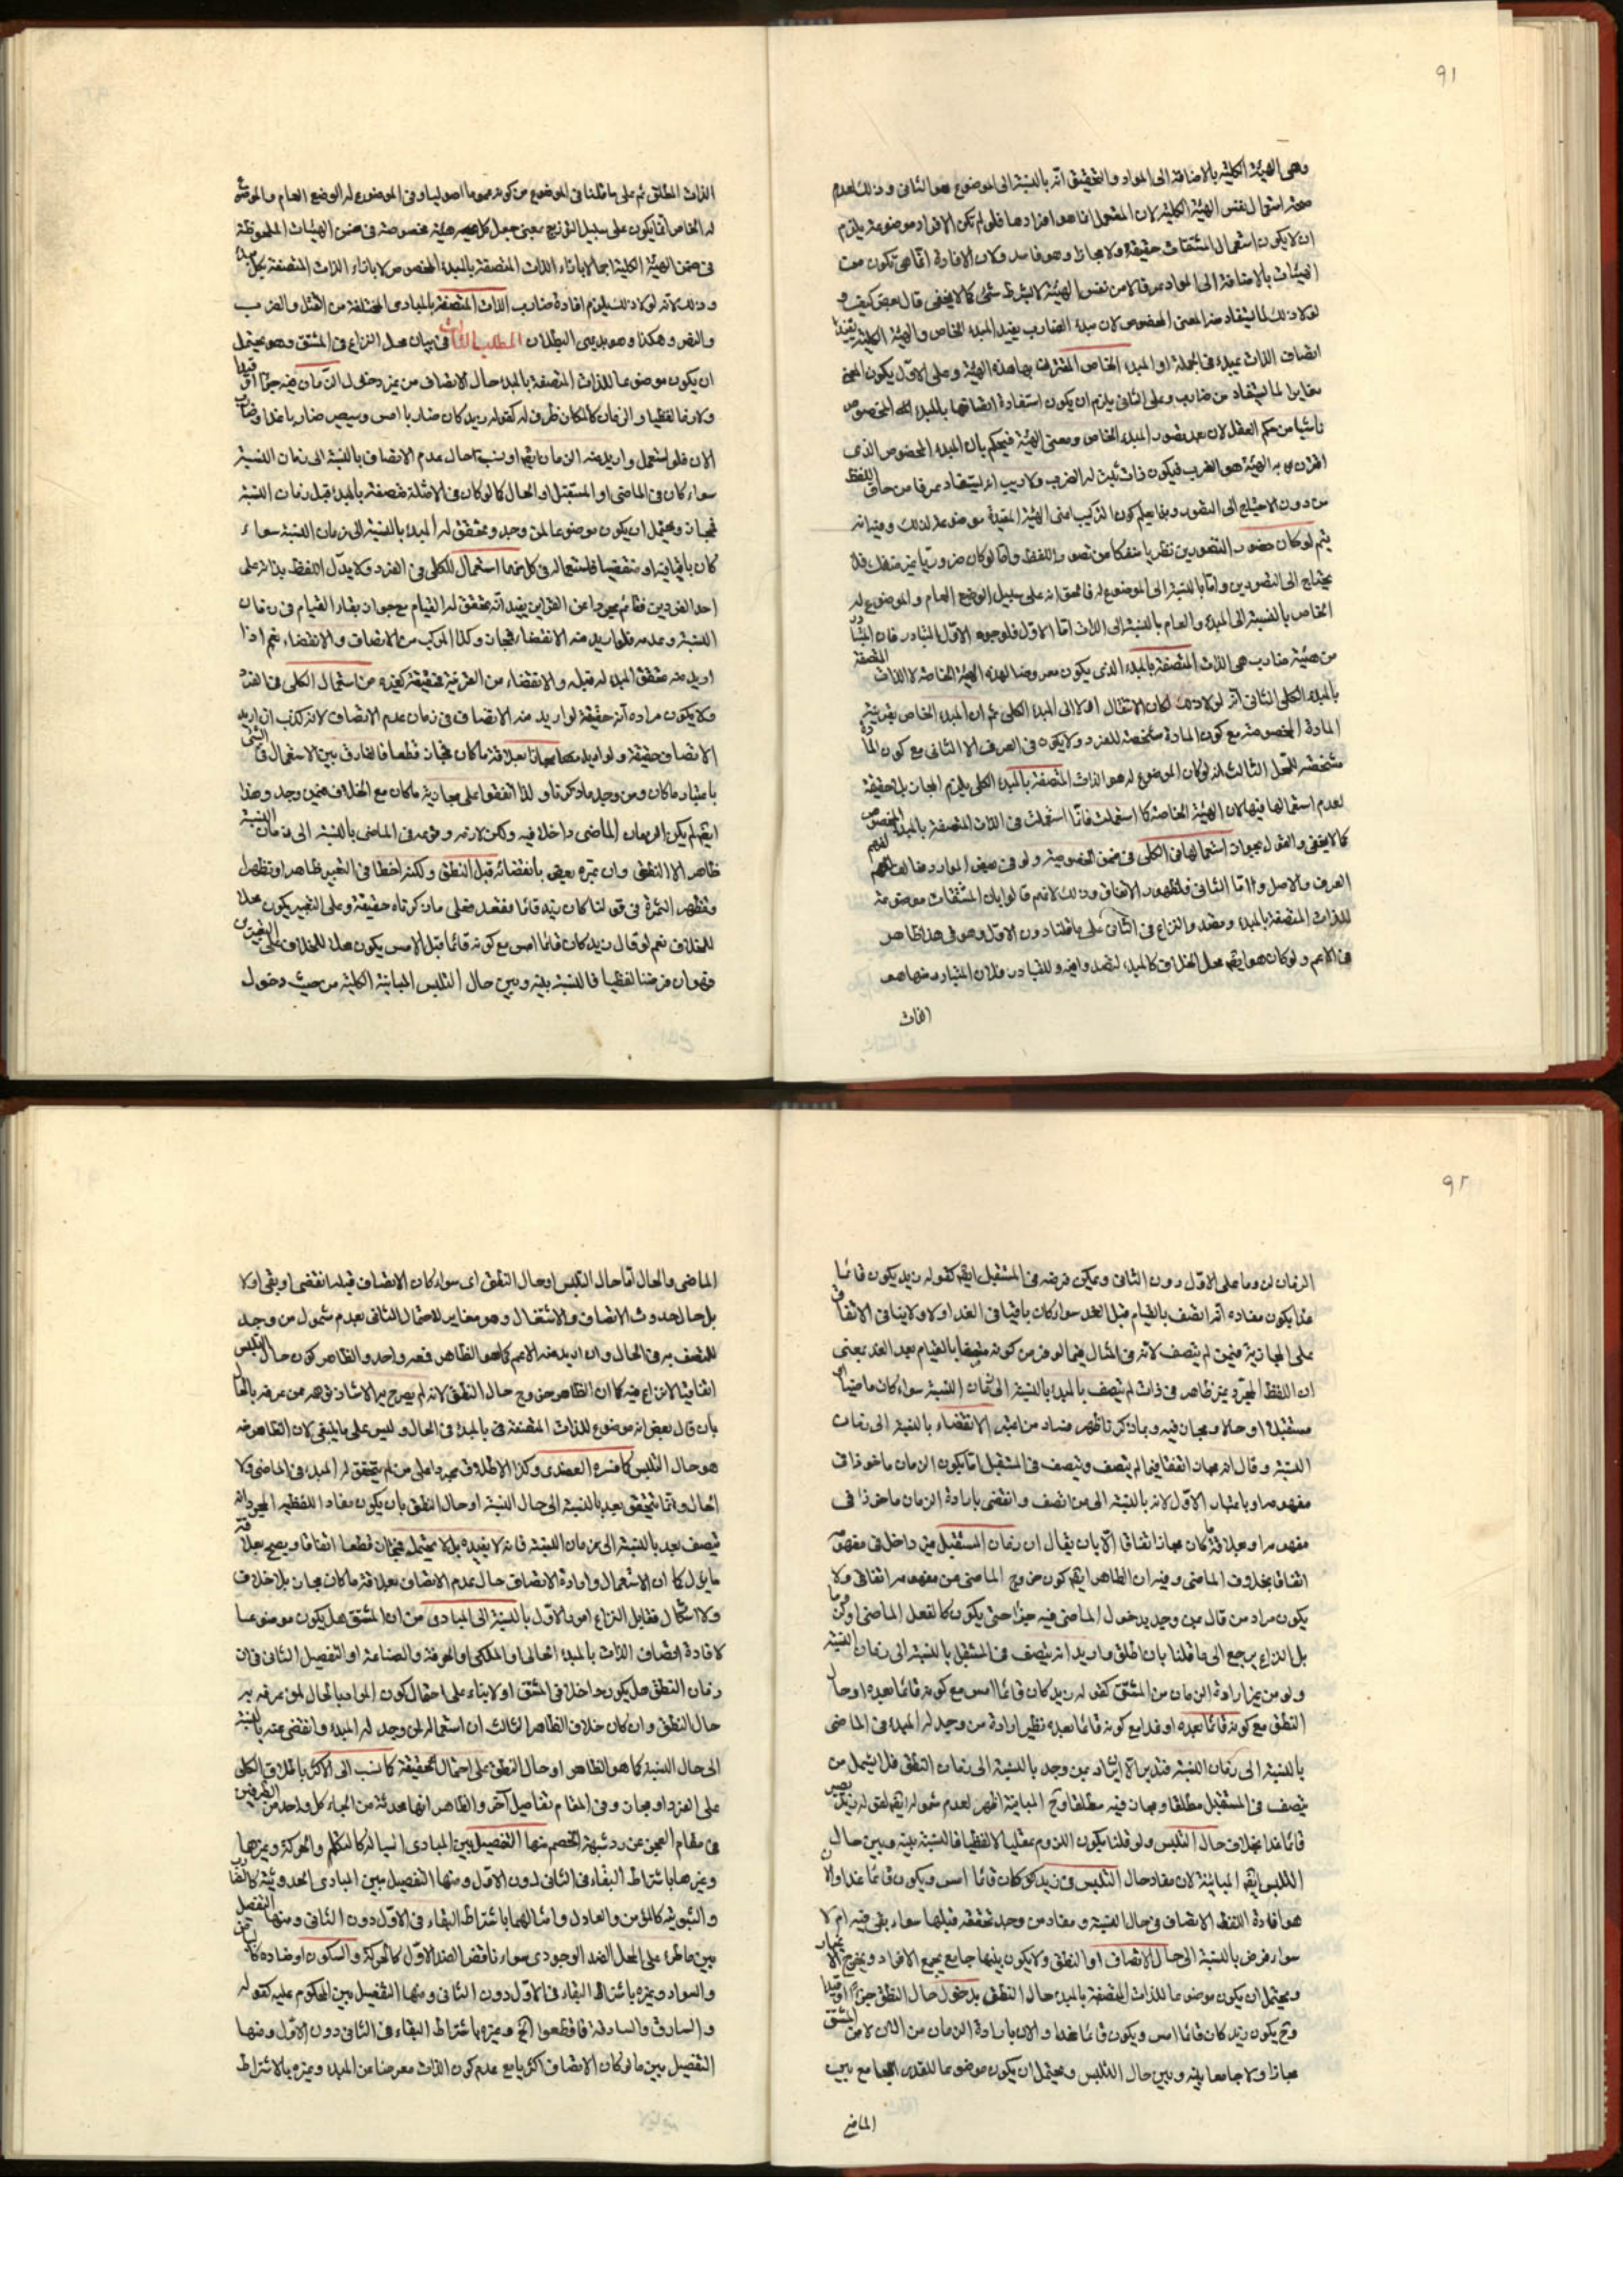 ٩١
وهي الهيئة الكلية بالاضافة الى المواد والتحقيق انه بالنسبة الى الموضوع هو الثاني وذلك لعدم
صحة استعمال نفس الهيئة الكلية لان المستعمل انما هو افرادها فلو لم تكن الافراد موضوعة يلزم
ان لا يكون استعمال المشتقات حقيقة ولا مجازا وهو فاسد ولان الافادة انما هي تكون من
الهيئات بالاضافة الى المواد عرفا لا من نفس الهيئة لا بشرط شيء كما لا يخفى قال بعض كيف و
لو كان كذلك لما يستفاد منه المعنى المخصوص لان مبدء الضارب يفيد المبدء الخاص والهيئة الكلية يفيد
اتصاف الذات بمبدء في الجملة او المبدء الخاص المقترن بها هذه الهيئة وعلى الاول يكون المعنى
مغايرا لما يستفاد من ضارب وعلى الثاني يلزم ان يكون استفادة اتصافها بالمبدء المخصوص
ناشيا من حكم العقل لان بعد تصور المبدء الخاص ومعنى الهيئة فيحكم بان المبدء المخصوص الذي
اقترن به الهيئة هو الضرب فيكون ذات ثبت له الضرب ولا ريب انه يستفاد عرفا من حاق اللفظ
من دون الاحتياج الى التصور وبما يعلم كون التركيب اعني الهيئة المقيدة موضوعة لذلك وفيه انه
يتم لو كان حضور التصورين نظريا منفكا من تصور اللفظ واما لو كان ضروريا غير منفك فلا
يحتاج الى التصورين واما بالنسبة الى الموضوع له فالحق انه على سبيل الوضع العام والموضوع له
الخاص بالنسبة الى المبدء والعام بالنسبة الى الذات اما الاول فلوجوه الاول التبادر فان المتبادر
من هيئة ضارب هي الذات المتصفة بالمبدء الذي يكون معروضا لهذه الهيئة الخاصة لا الذات المتصفة
بالمبدء الكلي الثاني انه لولا ذلك لكان الانتقال اولا الى المبدء الكلي ثم ان المبدء الخاص بقرينة
المادة المخصوصة مع كون المادة مشخصة للفرد ولا يكون في العرف الا الثاني مع كون المادة
مشخصة للحمل الثالث انه لو كان الموضوع له هو الذات المتصفة بالمبدء الكلي يلزم المجاز بلا حقيقة
لعدم استعمالها فيها لان الهيئة الخاصة كلما استعملت فانما استعملت في الذات المتصفة بالمبدء المخصوص
كما لا يخفى والقول بجواز استعمالها في الكلي في ضمن الخصوصية ولو في بعض الموارد مخالف لفهم
العرف والاصل واما الثاني فلظهور الاتفاق وذلك لانهم قالوا بان المشتقات موضوعة
للذات المتصفة بالمبدء ومقصد والنزاع في الثاني على ما قلنا دون الاول وهو في هذا ظاهر
في الاعم ولو كان هو ايضا محل الخلاف كالمبدء لتصدوا فيه وللتبادر فلان المتبادر منها هو
الذات
الذات المطلق ثم على ما قلنا في الموضوع من كونه عموما اصوليا وفي الموضوع له الوضع العام والموضوع
له الخاص انما يكون على سبيل التوزيع بمعنى جعل كل هيئة مخصوصة في ضمن الهيئات الملحوظة
في ضمن الهيئة الكلية اجمالا بازاء الذات المتصفة بالمبدء المخصوص لا بازاء الذات المتصفة بكل مبدء
وذلك لانه لولا ذلك يلزم افادة ضارب الذات المتصفة بالمبادي المختلفة من القتل والضرب
والنصر وهكذا وهو بديهي البطلان المطلب الثالث في بيان محل النزاع في المشتق وهو يحتمل
ان يكون موضوعا للذات المتصفة بالمبدء حال الاتصاف من غير دخول الزمان فيه جزءا او قيدا
ولازما لفظيا والزمان كالمكان ظرف له كقوله زيد كان ضاربا امس وسيصير ضاربا غدا وضارب
الان فلو استعمل واريد منه الزمان ايضا او ينسب حال عدم الاتصاف بالنسبة الى زمان النسبة
سواء كان في الماضي او المستقبل او الحال كما لو كان في الامثلة متصفة بالمبدء قبل زمان النسبة
فمجاز ويحتمل ان يكون موضوعا لمن وجد وتحقق له المبدء بالنسبة الى زمان النسبة سواء
كان باقيا فيه او منقضيا فاستعماله في كل منهما استعمال للكلي في الفرد ولا يدل اللفظ بذاته على
احد الفردين فقائم مجردا عن القراين يفيد انه متحقق له القيام مع جواز بقاء القيام في زمان
النسبة وعدمه فلو اريد منه الانقضاء فمجاز وكذا المركب من الاتصاف والانقضاء نعم اذا
اريد منه متحقق المبدء له قبله والانقضاء من القرينة فحقيقة كغيره من استعمال الكلي في الفرد
ولا يكون مراده انه حقيقة لو اريد منه الاتصاف في زمان عدم الاتصاف لانه كذب ان اريد
الاتصاف حقيقة ولو اريد مجازا بعلاقة ما كان فمجاز قطعا فالفارق بين الاستعمال في الشيء
باعتبار ما كان ومن وجد ما ذكرنا ولذا اتفقوا على مجازية ما كان مع الخلاف فيمن وجد وهذا
ايضا لم يكن الزمان الماضي داخلا فيه ولكن لازمه وقوعه في الماضي بالنسبة الى زمان النسبة
ظاهر الا النطق وان عبره بعض بانقضائه قبل النطق ولكنه اخطا في التعبير ظاهرا وتظهر
وتظهر الثمرة في قولنا كان زيد قائما فقعد فعلى ما ذكرناه حقيقة وعلى التعبير يكون محلا
للخلاف نعم لو قال زيد كان قائما امس مع كونه قائما قبل الامس يكون محلا للخلاف على التعبيرين
فهو ان فرضنا لفظيا فالنسبة بينه وبين حال التلبس المباينة الكلية من حيث دخول
٩٢
الزمان لزوما على الاول دون الثاني ويمكن فرضه في المستقبل ايضا كقوله زيد يكون قائما
غدا يكون مفاده انه اتصف بالقيام قبل الغد سواء كان باقيا في الغد اولا ولا ينافي الاتفاق
على المجازية فيمن لم يتصف لانه في المثال فيما لو فرض كونه متصفا بالقيام بعد الغد بمعنى
ان اللفظ المجرد غير ظاهر في ذات لم يتصف بالمبدء بالنسبة الى زمان النسبة سواء كان ماضيا او
مستقبلا او حالا ومجاز فيه وبما ذكرنا ظهر فساد من اعتبر الانقضاء بالنسبة الى زمان
النسبة وقال انه مجاز اتفاقا فيما لم يتصف ويتصف في المستقبل اما بكون الزمان ماخوذا في
مفهومه او باعتبار الاول لانه بالنسبة الى من اتصف وانقضى بارادة الزمان ماخوذا في
مفهومه او بعلاقة ما كان مجازا اتفاقا الا بان يقال ان زمان المستقبل غير داخل في مفهومه
اتفاقا بخلاف الماضي وفيه ان الظاهر ايضا كون خروج الماضي من مفهومه اتفاقي ولا
يكون مراد من قال بمن وجد بدخول الماضي فيه جزءا حتى يكون كالفعل الماضي او لازما
بل النزاع يرجع الى ما قلنا بان اطلق واريد انه يتصف في المستقبل بالنسبة الى زمان النسبة
ولو من غير ارادة الزمان من المشتق كقوله زيد كان قائما امس مع كونه قائما بعده او حال
النطق مع كونه قائما بعده او غدا مع كونه قائما بعده نظير ارادة من وجد له المبدء في الماضي
بالنسبة الى زمان النسبة فتدبر بمن وجد بالنسبة الى زمان النطق فلا يشمل من
يتصف في المستقبل مطلقا ومجاز فيه مطلقا وح المباينة اظهر لعدم شموله ايضا لقوله زيد يصير
قائما غدا بخلاف حال التلبس ولو قلنا بكون اللزوم عقليا لا لفظيا فالنسبة بينه وبين حال
التلبس ايضا المباينة لان مفاد حال التلبس في زيد كان قائما امس ويكون قائما غدا والان
هو افادة اللفظ الاتصاف في حال النسبة ومفاد من وجد تحققه قبلها سواء بقي فيه ام لا
سواء فرض بالنسبة الى حال الاتصاف او النطق ولا يكون بينهما جامع يجمع الافراد ويخرج الاغيار
ويحتمل ان يكون موضوعا للذات المتصفة بالمبدء حال النطق بدخول حال النطق جزءا او قيدا
وح يكون زيد كان قائما امس ويكون قائما غدا والان بارادة الزمان من المشتق
مجازا ولا جامعا بينه وبين حال التلبس ويحتمل ان يكون موضوعا للقدر الجامع بين
الماضي
الماضي والحال اما حال التلبس او حال النطق اي سواء كان الاتصاف قبله انقضى او بقي اولا
بل حال حدوث الاتصاف والاشتغال وهو مغاير للاحتمال الثاني بعدم شمول من وجد
للمتصف به في الحال وان اريد منه الاعم كما هو الظاهر فهو واحد والظاهر كون حال التلبس
اتفاقيا لا نزاع فيه كما ان الظاهر خروج حال النطق لانه لم يصرح به الا شاذ نعم من عرفه بالحال
بان قال بعض انه موضوع للذات المتصفة بالمبدء في الحال وليس على ما ينبغي لان الظاهر منه
هو حال التلبس كما فسره العضدي وكذا الاطلاق مجردا على من لم يتحقق له المبدء في الماضي ولا
الحال وانما يتحقق بعد بالنسبة الى حال النسبة او حال النطق بان يكون مفاد اللفظ المجرد انه
يتصف بعد بالنسبة الى زمان النسبة فانه لا يفيده بل لا يحتمله فمجاز قطعا اتفاقا ويصح بعلاقة
ما يؤل كما ان الاستعمال وارادة الاتصاف حال عدم الاتصاف بعلاقة ما كان مجاز بلا خلاف
ولا اشكال فقابل النزاع امور الاول بالنسبة الى المبادي من ان المشتق هل يكون موضوعا
لافادة اتصاف الذات بالمبدء الحالي والملكي والحرفة والصناعة او التفصيل الثاني في ان
زمان النطق هل يكون داخلا في المشتق اولا بناء على احتمال كون المراد بالحال لمن عرفه به
حال النطق وان كان خلاف الظاهر الثالث ان استعماله لمن وجد له المبدء وانقضى عنه بالنسبة
الى حال النسبة كما هو الظاهر او حال النطق على احتمال حقيقة كما نسب الى الاكثر باطلاق الكلي
على الفرد او مجاز وفي المقام تفاصيل اخر والظاهر انها محدثة من الجاء كل واحد من الطرفين
في مقام العجز عن رد شبهة الخصم منها التفصيل بين المبادي السيالة كالتكلم والحركة وغيرها
وغيرها باشتراط البقاء في الثاني دون الاول ومنها التفصيل بين المبادي الحدوثية كالضارب
والثبوتية كالمؤمن والعادل وامثالهما باشتراط البقاء في الاول دون الثاني ومنها التفصيل
بين ما طرء على المحل الضد الوجودي سواء ناقض الضد الاول كالحركة والسكون او ضاده كالبياض
والسواد وغيره باشتراط البقاء في الاول دون الثاني ومنها التفصيل بين المحكوم عليه كقوله
والسارق والسارقة فاقطعوا الخ وغيره باشتراط البقاء في الثاني دون الاول ومنها
التفصيل بين ما لو كان الاتصاف اكثريا مع عدم كون الذات معرضا عن المبدء وغيره بالاشتراط